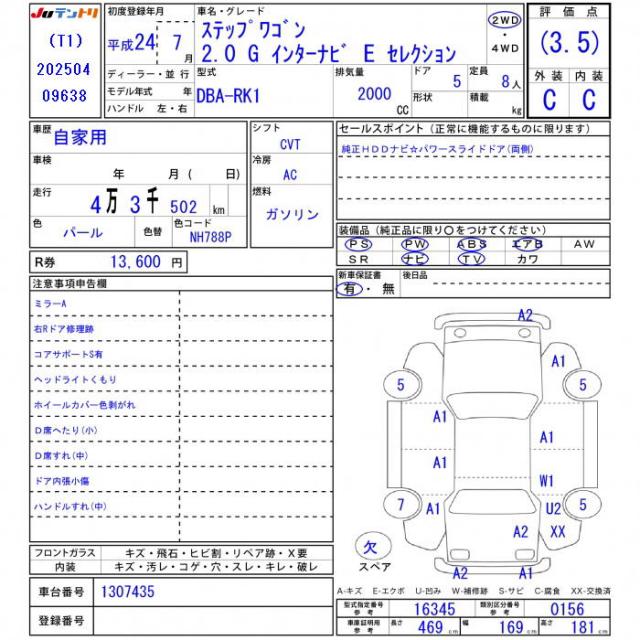 JUテントリ
(T1)
202504
09638
初度登録年月
平成24年 7月
ディーラー・並 行
モデル年式 年
ハンドル 左・右
車名・グレード
ステップワゴン
2.0 G インターナビ E セレクション
2WD
・
4WD
型式
DBA-RK1
排気量
2000
CC
ドア
5
形状
定員
8人
積載
kg
評 価 点
(3.5)
外 装
内 装
C
C
車歴
自家用
車検
年 月 ( 日)
走行
4 万 3 千 502 km
色
パール
色替
色コード
NH788P
シフト
CVT
冷房
AC
燃料
ガソリン
R券
13,600 円
セールスポイント (正常に機能するものに限ります)
純正HDDナビ☆パワースライドドア(両側)
装備品 (純正品に限り〇をつけてください)
PS PW ABS エアB AW
SR ナビ TV カワ
新車保証書
有・無
後日品
注意事項申告欄
ミラーA
右Rドア修理跡
コアサポートS有
ヘッドライトくもり
ホイールカバー色剥がれ
D席へたり(小)
D席すれ(中)
ドア内張小傷
ハンドルすれ(中)
フロントガラス
キズ・飛石・ヒビ割・リペア跡・X要
内装
キズ・汚レ・コゲ・穴・スレ・キレ・破レ
車台番号
1307435
登録番号
A2
A1
5
5
A1
A1
A1
W1
7
A1
U2
5
A2
XX
A2
A1
欠
スペア
A-キズ E-エクボ U-凹み W-補修跡 S-サビ C-腐食 XX-交換済
型式指定番号
参考
16345
類別区分番号
参考
0156
車庫証明用
参考
長さ 469 cm
幅 169 cm
高さ 181 cm